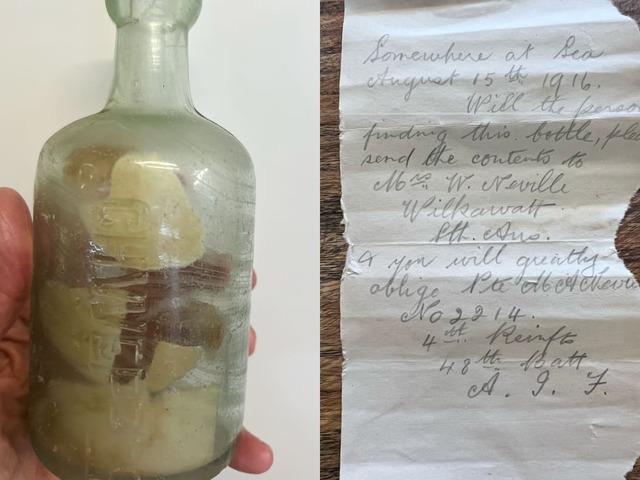 Somewhere at Sea
August 15th 1916.
Will the
finding this bottle,
send the contents to
Mrs W. Neville
Wilkawatt
Sth. Aus.
& you will greatly
oblige Pte
No 2214.
4th Reinfts
48th Batt
A. I. F.